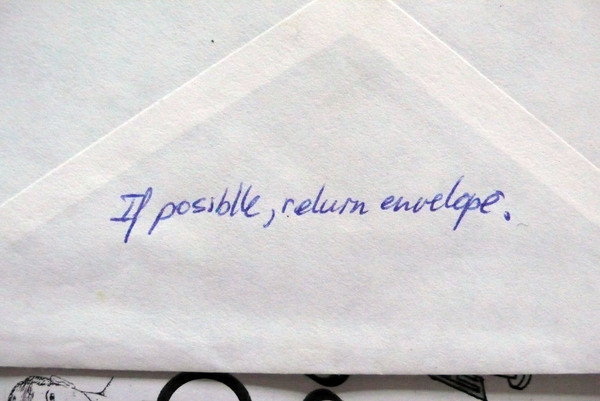 If posiblle, return envelope.